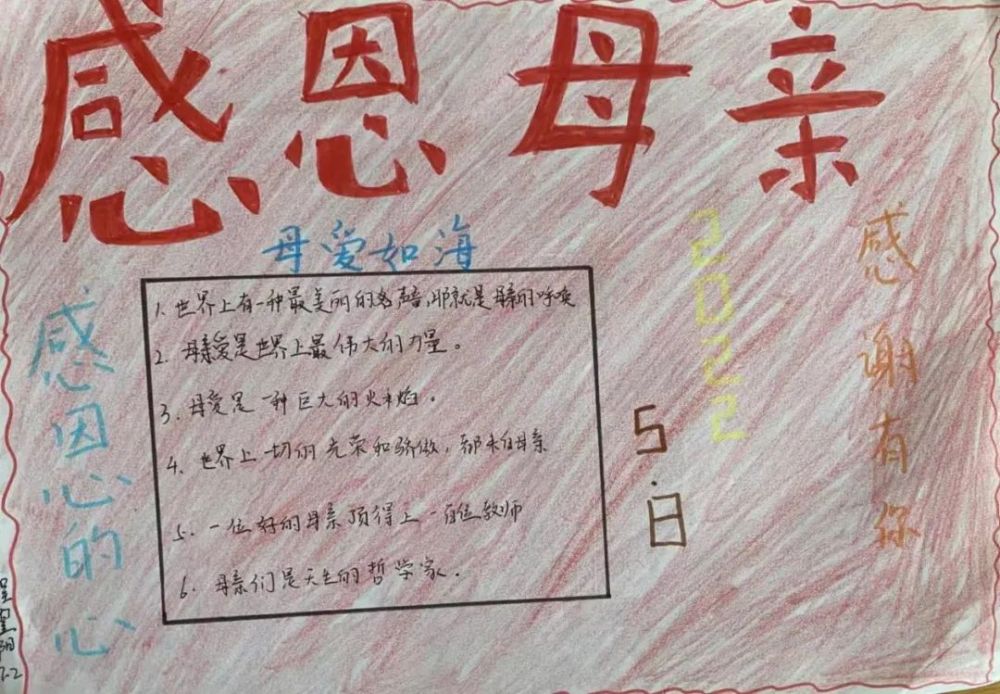 感恩母亲
母爱如海
1. 世界上有一种最美丽的声音,那就是母亲的呼唤
2. 母亲爱是世界上最伟大的力量。
3. 母爱是一种巨大的火焰。
4. 世界上一切的光荣和骄傲,都来自母亲
5. 一位好的母亲顶得上一百位教师
6. 母亲们是天生的哲学家。
感恩的心
2022
5.8
感谢有你